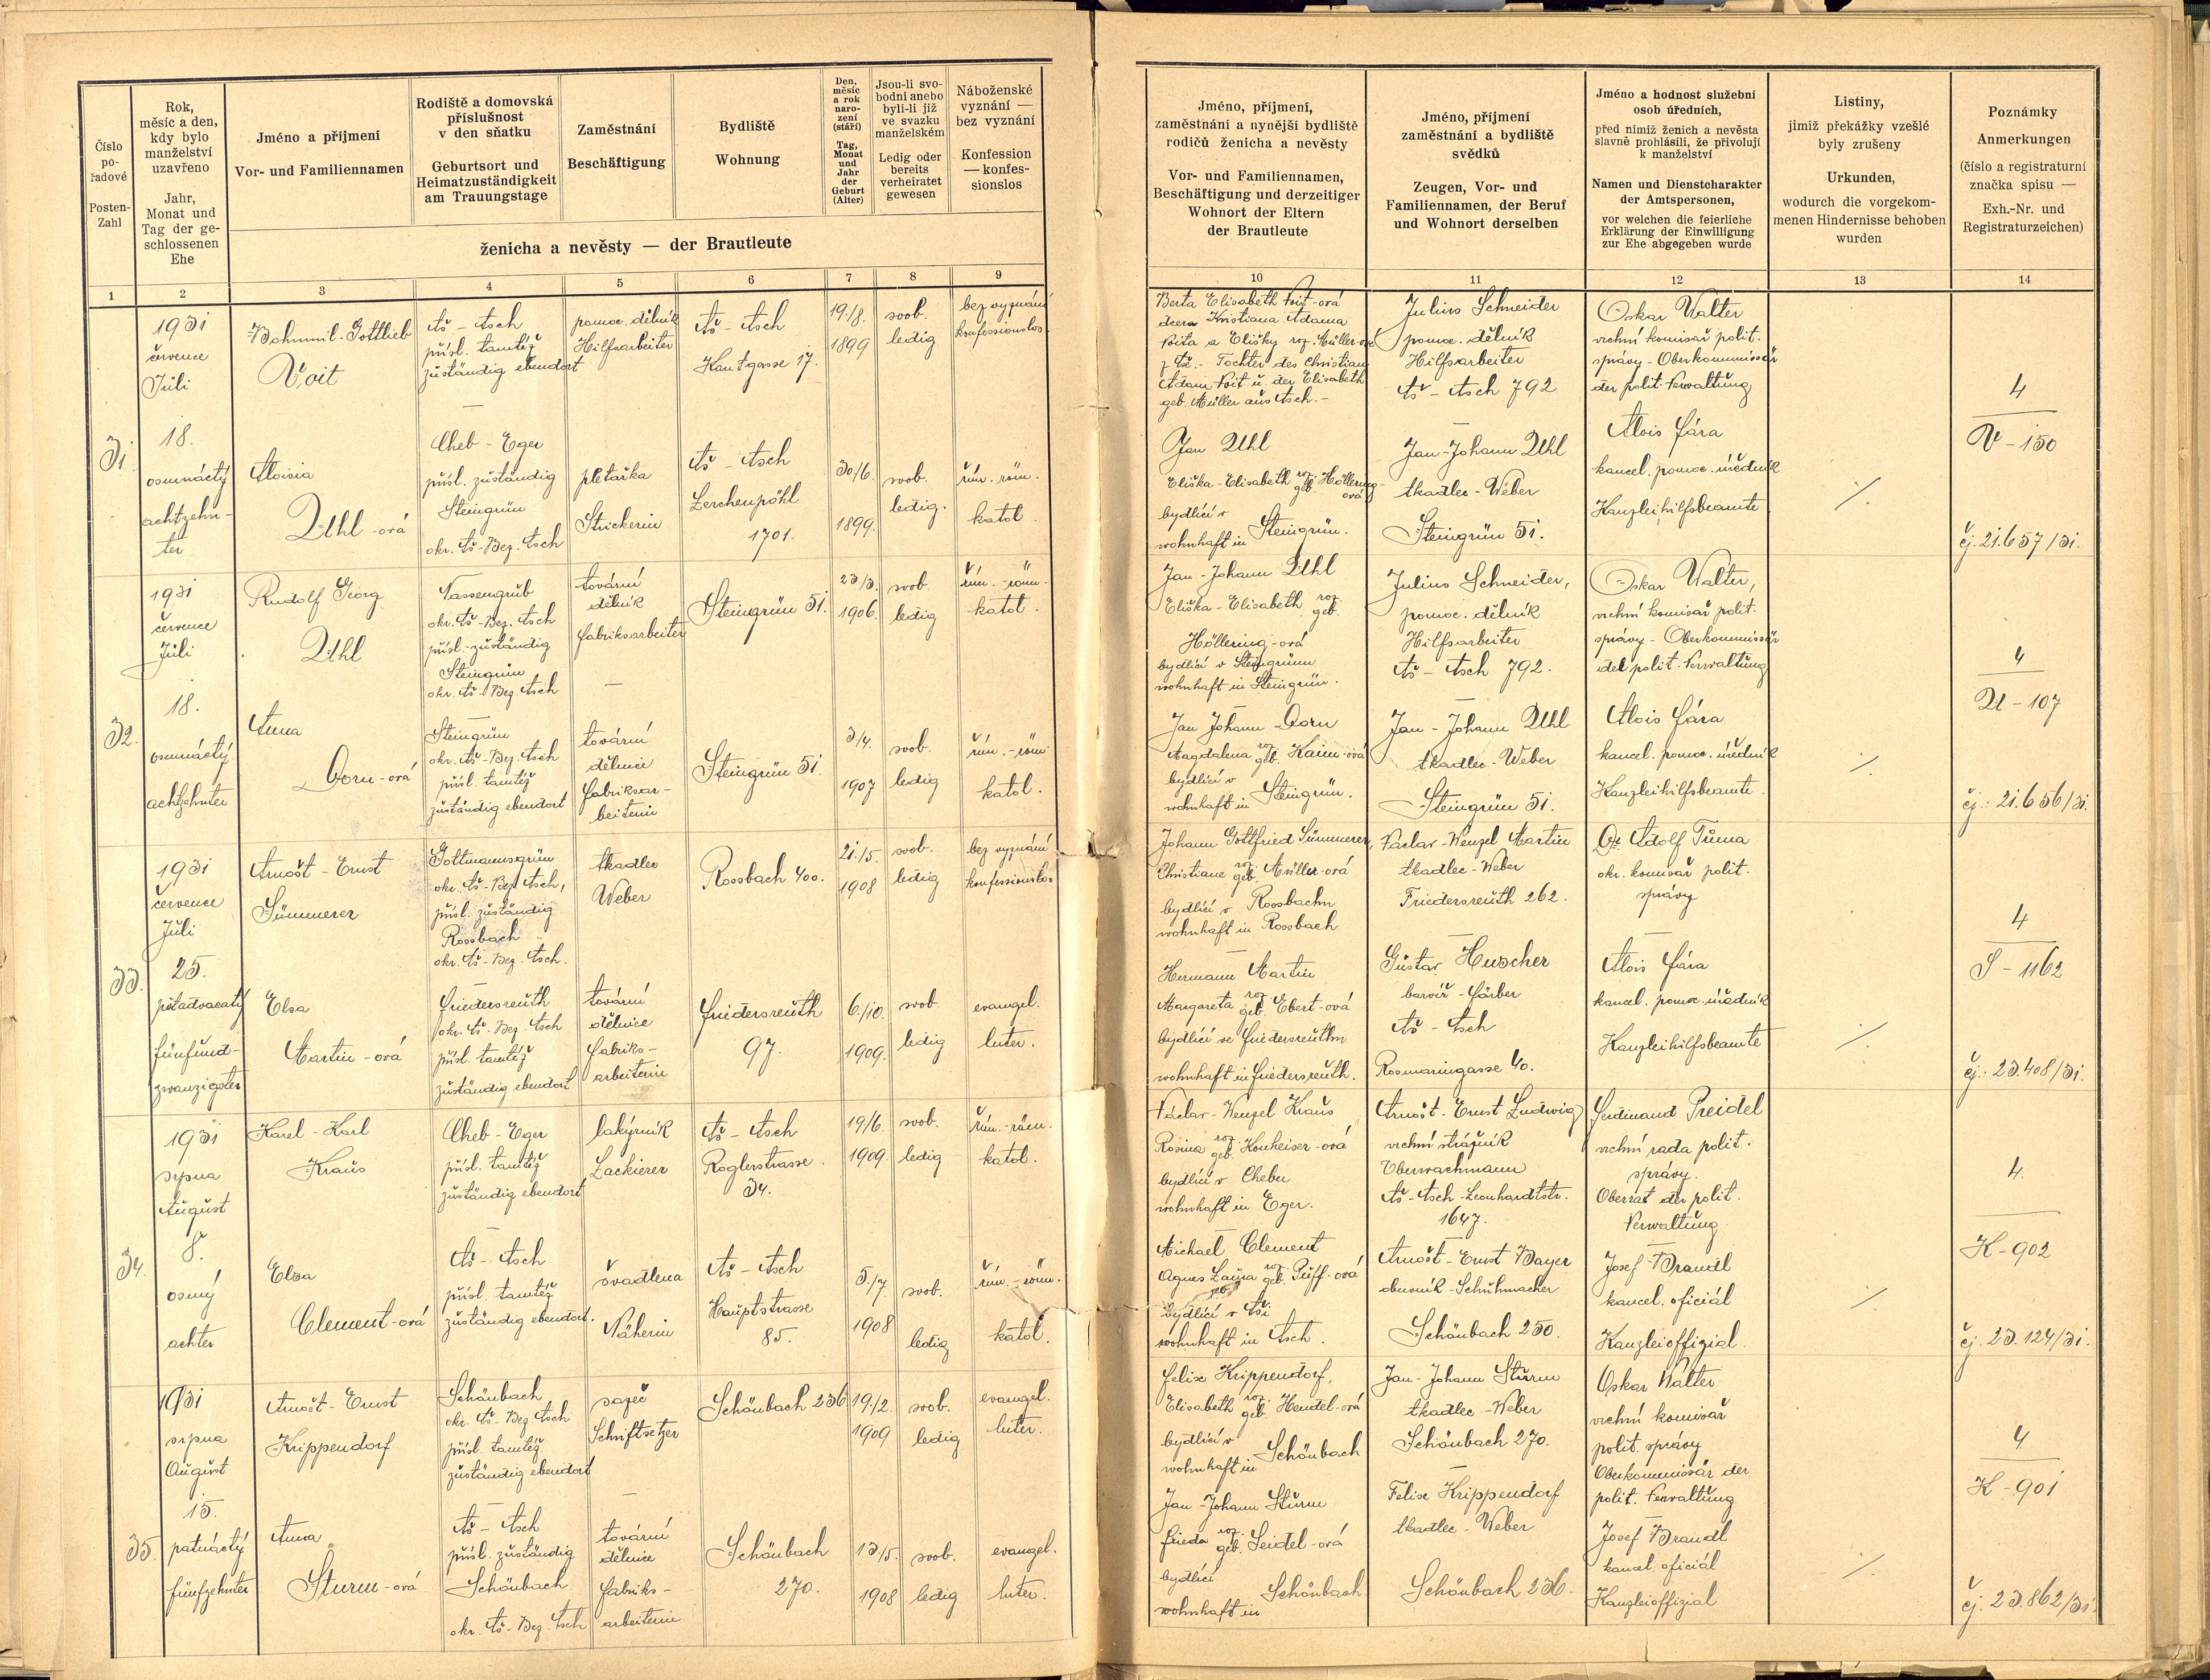 Číslo
po-
řadové
Posten-
Zahl
Rok,
měsíc a den,
kdy bylo
manželství
uzavřeno
Jahr,
Monat und
Tag der ge-
schlossenen
Ehe
Jméno a příjmení
Vor- und Familiennamen
Rodiště a domovská
příslušnost
v den sňatku
Geburtsort und
Heimatzuständigkeit
am Trauungstage
Zaměstnání
Beschäftigung
Bydliště
Wohnung
Den,
měsíc
a rok
naro-
zení
(stáří)
Tag,
Monat
und
Jahr
der
Geburt
(Alter)
Jsou-li svo-
bodni anebo
byli-li již
ve svazku
manželském
Ledig oder
bereits
verheiratet
gewesen
Náboženské
vyznání —
bez vyznání
Konfession
— konfes-
sionslos
ženicha a nevěsty — der Brautleute
1 2 3 4 5 6 7 8 9
31.
1931
července
Juli
18.
osmnáctý
achtzehn-
ter
Bohumil-Gottlieb
Voit
Aš - Asch
přísl. tamtéž
zuständig ebendort
pomoc. dělník
Hilfsarbeiter
Aš - Asch
Kantgasse 17.
19./8.
1899
svob.
ledig
bez vyznání
konfessionslos
Aloisia
Uhl-ová
Cheb - Eger
přísl. zuständig
Steingrün
okr. Aš-Bez. Asch
pletařka
Strickerin
Aš - Asch
Lerchenpöhl
1701.
30/6.
1899.
svob.
ledig.
řím. röm.
katol.
32.
1931
července
Juli
18.
osmnáctý
achtzehnter
Rudolf Georg
Uhl
Nassengrub
okr. Aš-Bez. Asch
přísl.-zuständig
Steingrün
okr. Aš-Bez. Asch
tovární
dělník
Fabriksarbeiter
Steingrün 51.
23/3.
1906.
svob.
ledig
řím.-röm.
katol.
Anna
Dorn-ová
Steingrün
okr. Aš-Bez. Asch
přísl. tamtéž
zuständig ebendort
tovární
dělnice
Fabriksar-
beiterin
Steingrün 51.
3/4.
1907
svob.
ledig
řím.-röm.
katol.
33.
1931
července
Juli
25.
pětadvacatý
fünfund-
zwanzigster
Arnošt - Ernst
Sümmerer
Gottmannsgrün
okr. Aš-Bez. Asch,
přísl. zuständig
Rossbach
okr. Aš-Bez. Asch.
tkadlec
Weber
Rossbach 400.
21./5.
1908
svob.
ledig
bez vyznání
konfessionslos
Elsa
Martin-ová
Friedersreuth
okr. Aš-Bez. Asch
přísl. tamtéž
zuständig ebendort
tovární
dělnice
Fabriks-
arbeiterin
Friedersreuth
97.
6./10.
1909.
svob.
ledig
evangel.
luter.
34.
1931
srpna
August
8.
osmý
achter
Karel - Karl
Kraus
Cheb - Eger
přísl. tamtéž
zuständig ebendort
lakýrník
Lackierer
Aš - Asch
Roglerstrasse.
34.
19/6.
1909.
svob.
ledig
řím.-röm.
katol.
Elsa
Clement-ová
Aš - Asch
přísl. tamtéž
zuständig ebendort.
švadlena
Näherin
Aš - Asch
Hauptstrasse
85.
5./7
1908
svob.
ledig
řím.-röm.
katol.
35.
1931
srpna
August
15.
patnáctý
fünfzehnter
Arnošt - Ernst
Krippendorf
Schönbach
okr. Aš-Bez. Asch
přísl. tamtéž
zuständig ebendort
sazeč
Schriftsetzer
Schönbach 236
19./2.
1909
svob.
ledig
evangel.
luter.
Anna
Sturm-ová
Aš - Asch
přísl. zuständig
Schönbach
okr. Aš-Bez. Asch
tovární
dělnice
Fabriks-
arbeiterin
Schönbach
270.
13/5.
1908
svob.
ledig
evangel.
luter.
Jméno, příjmení,
zaměstnání a nynější bydliště
rodičů ženicha a nevěsty
Vor- und Familiennamen,
Beschäftigung und derzeitiger
Wohnort der Eltern
der Brautleute
Jméno, příjmení
zaměstnání a bydliště
svědků
Zeugen, Vor- und
Familiennamen, der Beruf
und Wohnort derselben
Jméno a hodnost služební
osob úředních,
před nimiž ženich a nevěsta
slavně prohlásili, že přivolují
k manželství
Namen und Dienstcharakter
der Amtspersonen,
vor welchen die feierliche
Erklärung der Einwilligung
zur Ehe abgegeben wurde
Listiny,
jimiž překážky vzešlé
byly zrušeny
Urkunden,
wodurch die vorgekom-
menen Hindernisse behoben
wurden
Poznámky
Anmerkungen
(číslo a registraturní
značka spisu —
Exh.-Nr. und
Registraturzeichen)
10 11 12 13 14
Berta Elisabeth Voit-ová
dcera Kristiana Adama
Voita a Elišky roz. Müller-ové
z Aše.- Tochter des Christian
Adam Voit u. der Elisabeth
geb. Müller aus Asch.-
Julius Schneider
pomoc. dělník
Hilfsarbeiter
Aš - Asch 792
Oskar Walter
vrchní komisař polit.
správy - Oberkommissär
der polit. Verwaltung
Jan Uhl
Eliška-Elisabeth roz. geb. Höllering-
ová
bydlící v
wohnhaft in Steingrün.
Jan-Johann Uhl
tkadlec - Weber
Steingrün 51.
Alois Fára
kancel. pomoc. úředník
Kanzleihilfsbeamte
./.
4
V - 150
čj. 21.657/31.
Jan-Johann Uhl
Eliška-Elisabeth roz. geb.
Höllering-ová
bydlící v Steingrünu
wohnhaft in Steingrün.
Julius Schneider,
pomoc. dělník
Hilfsarbeiter
Aš - Asch 792.
Oskar Walter,
vrchní komisař polit.
správy - Oberkommissär
der polit. Verwaltung
Jan Johann Dorn
Magdalena roz. geb. Kaim-ová
bydlící v
wohnhaft in Steingrün.
Jan-Johann Uhl
tkadlec - Weber
Steingrün 51.
Alois Fára
kancel. pomoc. úředník
Kanzleihilfsbeamte.
./.
4
U - 107
čj.: 21.656/31.
Johann Gottfried Sümmerer,
Christiane roz. geb. Müller-ová
bydlící v Rossbachu
wohnhaft in Rossbach
Václav-Wenzel Martin
tkadlec - Weber
Friedersreuth 262.
Dr. Adolf Tůma
okr. komisař polit.
správy
Hermann Martin
Margareta roz. geb. Ebert-ová
bydlící ve Friedersreuthu
wohnhaft in Friedersreuth.
Gustav Huscher
barvíř - Färber
Aš - Asch
Rosmaringasse 40.
Alois Fára
kancel. pomoc. úředník
Kanzleihilfsbeamte
./.
4
S - 1162
čj.: 23.408/31.
Václav-Wenzel Kraus
Rosina roz. geb. Konheiser-ová
bydlící v Chebu
wohnhaft in Eger.
Arnošt-Ernst Ludwig
vrchní strážník
Oberwachmann
Aš-Asch-Leonhardtstr.
1647.
Ferdinand Preidel
vrchní rada polit.
správy.
Oberrat der polit.
Verwaltung
Michael Clement
Agnes Laura roz. geb. Puff-ová
bydlící v Aši
wohnhaft in Asch.
Arnošt-Ernst Bayer
obuvník - Schuhmacher
Schönbach 250.
Josef Brandl
kancel. oficiál
Kanzleioffizial.
./.
4.
K - 902
čj. 23.124/31.
Felix Krippendorf,
Elisabeth roz. geb. Hendel-ová
bydlící v
wohnhaft in Schönbach
Jan-Johann Sturm
tkadlec - Weber
Schönbach 270.
Oskar Walter
vrchní komisař
polit. správy
Oberkommissär der
polit. Verwaltung
Jan-Johann Sturm
Frieda roz. geb. Seidel-ová
bydlící
wohnhaft in Schönbach
Felix Krippendorf
tkadlec - Weber
Schönbach 236.
Josef Brandl
kancel. oficiál
Kanzleioffizial
./.
4
K - 901
čj. 23.862/31.